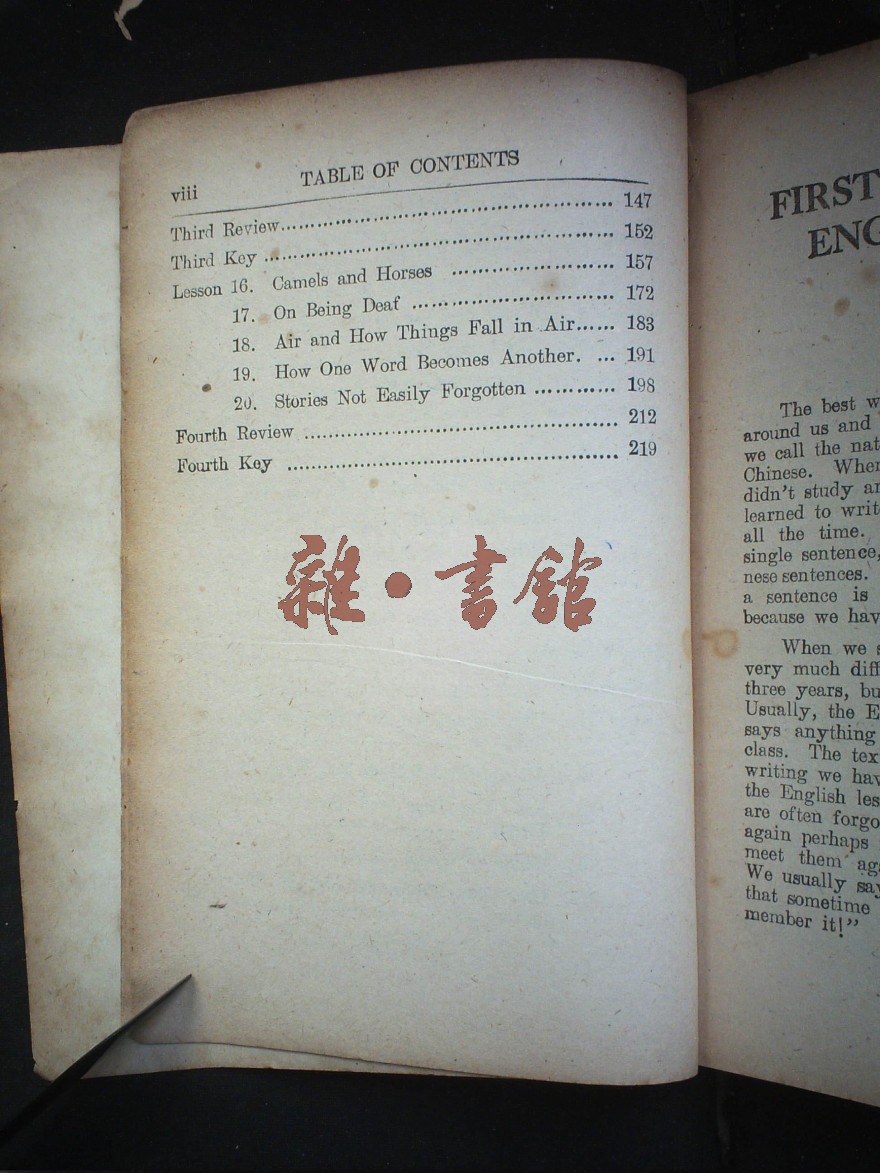 viii TABLE OF CONTENTS
Third Review 147
Third Key 152
Lesson 16. Camels and Horses 157
17. On Being Deaf 172
18. Air and How Things Fall in Air 183
19. How One Word Becomes Another. 191
20. Stories Not Easily Forgotten 198
Fourth Review 212
Fourth Key 219
雜•書館
FIRST
ENG
The best w
around us and
we call the nat
Chinese. When
didn't study an
learned to writ
all the time.
single sentence,
nese sentences.
a sentence is
because we hav
When we s
very much diff
three years, bu
Usually, the E
says anything
class. The tex
writing we hav
the English les
are often forgo
again perhaps
meet them aga
We usually say
that sometime
member it!"